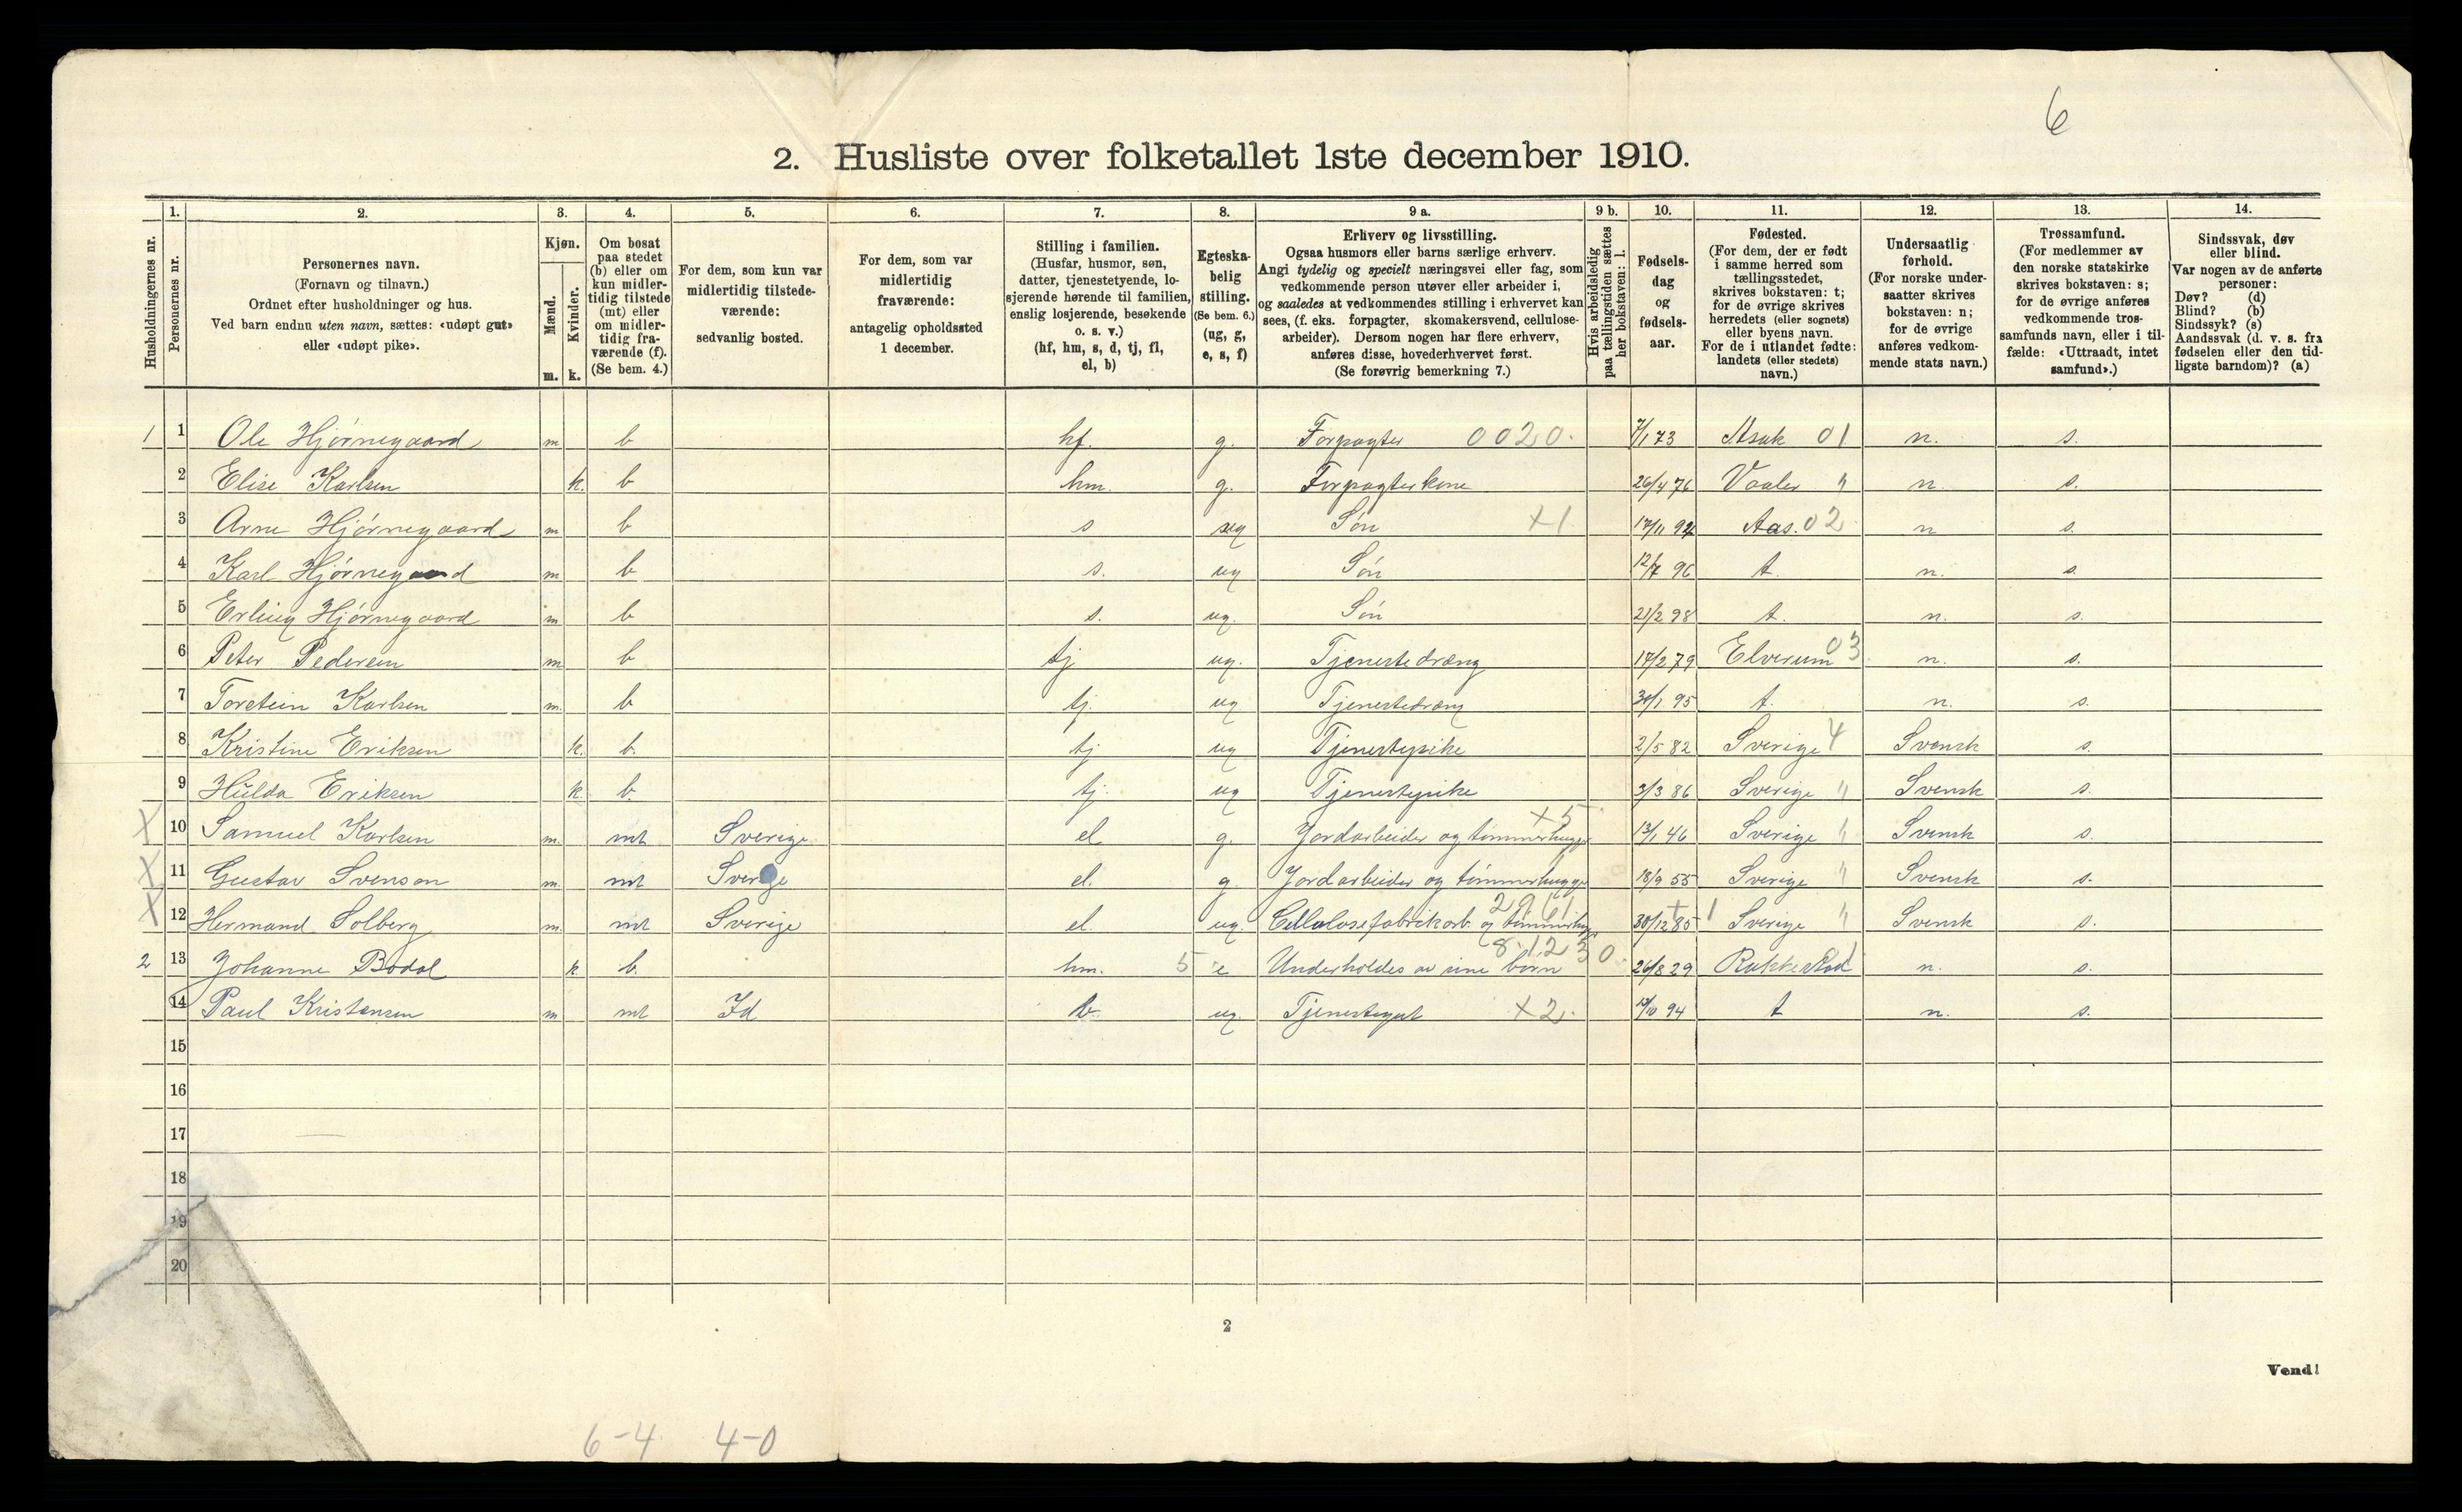 6
2. Husliste over folketallet 1ste december 1910.
1. 2. 3. 4. 5. 6. 7. 8. 9 a. 9 b. 10. 11. 12. 13. 14.
Husholdningernes nr.
Personernes nr.
Personernes navn.
(Fornavn og tilnavn.)
Ordnet efter husholdninger og hus.
Ved barn endnu uten navn, sættes: «udøpt gut»
eller «udøpt pike».
Kjøn.
Mænd.
Kvinder.
m. k.
Om bosat
paa stedet
(b) eller om
kun midler-
tidig tilstede
(mt) eller
om midler-
tidig fra-
værende (f).
(Se bem. 4.)
For dem, som kun var
midlertidig tilstede-
værende:
sedvanlig bosted.
For dem, som var
midlertidig
fraværende:
antagelig opholdssted
1 december.
Stilling i familien.
(Husfar, husmor, søn,
datter, tjenestetyende, lo-
sjerende hørende til familien,
enslig losjerende, besøkende
o. s. v.)
(hf, hm, s, d, tj, fl,
el, b)
Egteska-
belig
stilling.
(Se bem. 6.)
(ug, g,
e, s, f)
Erhverv og livsstilling.
Ogsaa husmors eller barns særlige erhverv.
Angi tydelig og specielt næringsvei eller fag, som
vedkommende person utøver eller arbeider i,
og saaledes at vedkommendes stilling i erhvervet kan
sees, (f. eks. forpagter, skomakersvend, cellulose-
arbeider). Dersom nogen har flere erhverv,
anføres disse, hovederhvervet først.
(Se forøvrig bemerkning 7.)
Hvis arbeidsledig
paa tællingstiden sættes
her bokstaven: l.
Fødsels-
dag
og
fødsels-
aar.
Fødested.
(For dem, der er født
i samme herred som
tællingsstedet,
skrives bokstaven: t;
for de øvrige skrives
herredets (eller sognets)
eller byens navn.
For de i utlandet fødte:
landets (eller stedets)
navn.)
Undersaatlig
forhold.
(For norske under-
saatter skrives
bokstaven: n;
for de øvrige
anføres vedkom-
mende stats navn.)
Trossamfund.
(For medlemmer av
den norske statskirke
skrives bokstaven: s;
for de øvrige anføres
vedkommende tros-
samfunds navn, eller i til-
fælde: «Uttraadt, intet
samfund».)
Sindssvak, døv
eller blind.
Var nogen av de anførte
personer:
Døv? (d)
Blind? (b)
Sindssyk? (s)
Aandssvak (d. v. s. fra
fødselen eller den tid-
ligste barndom)? (a)
1 1 Ole Hjørnegaard m b hf. g. Forpagter 0020. 7/1 73 Asak 01 n. s.
2 Elise Karlsen k. b hm. g. Forpagterkone 26/4 76 Vaaler " n. s.
3 Arne Hjørnegaard m b s ug Søn X1 17/11 92 Aas. 02 n s.
4 Karl Hjørnegaard m b s. ug Søn 12/7 96 t. n. s.
5 Erling Hjørnegaard m b s. ug. Søn 21/2 98 t. n. s.
6 Peter Pedersen m b tj ug. Tjenestedræng 17/2 79 Elverum 03 n. s.
7 Torstein Karlsen m. b tj. ug Tjenestedræng 30/1 95 t. n. s.
8 Kristine Eriksen k. b. tj ug Tjenestepike 2/5 82 Sverige 4 Svensk s.
9 Hulda Eriksen k. b. tj. ug Tjenestepike 3/3 86 Sverige " Svensk s.
X 10 Samuel Karlsen m. mt Sverige el. g. Jordarbeider og tømmerhugger X5 13/1 46 Sverige " Svensk s.
X 11 Gustav Svenson m. mt Sverige el. g. Jordarbeider og tømmerhugger 18/9 55 Sverige " Svensk s.
X 12 Hermand Solberg m. mt Sverige el. ug. Cellulosefabrikarb. og tømmerhug. 30/12 85 Sverige " Svensk s.
2 13 Johanne Bodal k b. hm. 5 e Underholdes av sine børn 26/8 29 Rakkestad n. s.
14 Paul Kristensen m mt Id b ug Tjenestegut X2. t n. s.
15
16
17
18
19
20
2
Vend!
6-4 4-0